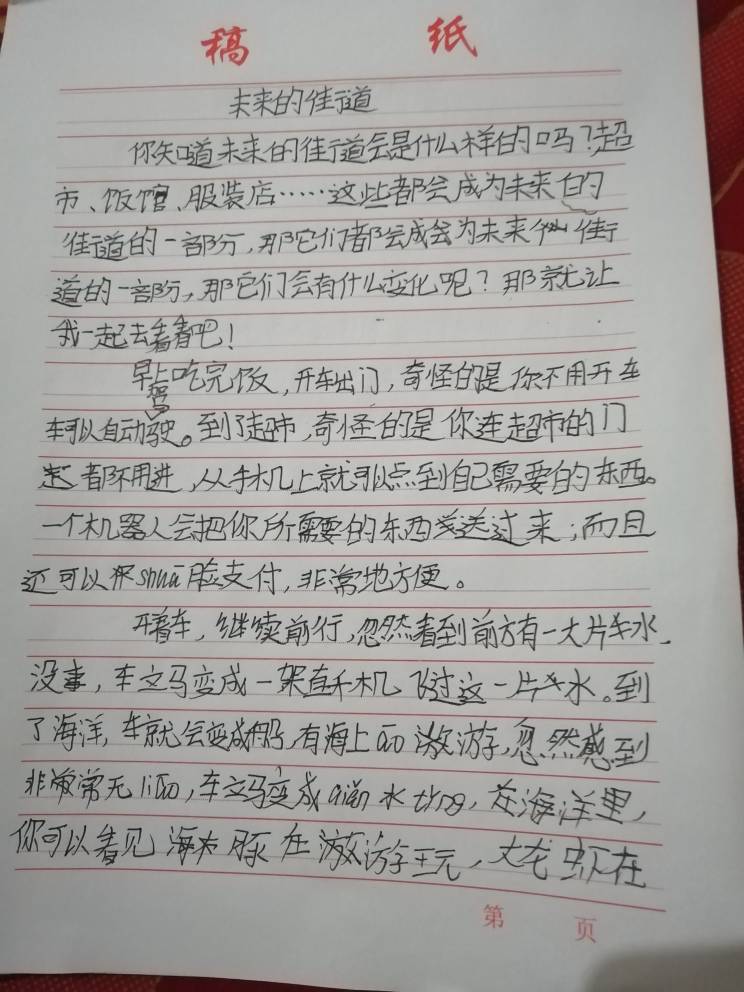 稿 纸
未来的街道
你知道未来的街道会是什么样的吗？超
市、饭馆、服装店……这些都会成为未来的
街道的一部分，那它们都会成会为未来 街
道的一部份，那它们会有什么变化呢？那就让
我一起去看看吧！
早上吃完饭，开车出门，奇怪的是你不用开车
车可以自动驾驶。到了超市，奇怪的是你连超市的门
都不用进，从手机上就可以点到自己需要的东西。
一个机器人会把你所需要的东西 送过来；而且
还可以 shuā脸支付，非常地方便。
开着车，继续前行，忽然看到前方有一大片车水，
没事，车立马变成一架直升机飞过这一片车水。到
了海洋，车就会变成船，有海上 áo 游，忽然感到
非常常无liáo，车立马变成qián水tǐng，在海洋里，
你可以看见海 豚在 游玩，大龙虾在
第 页